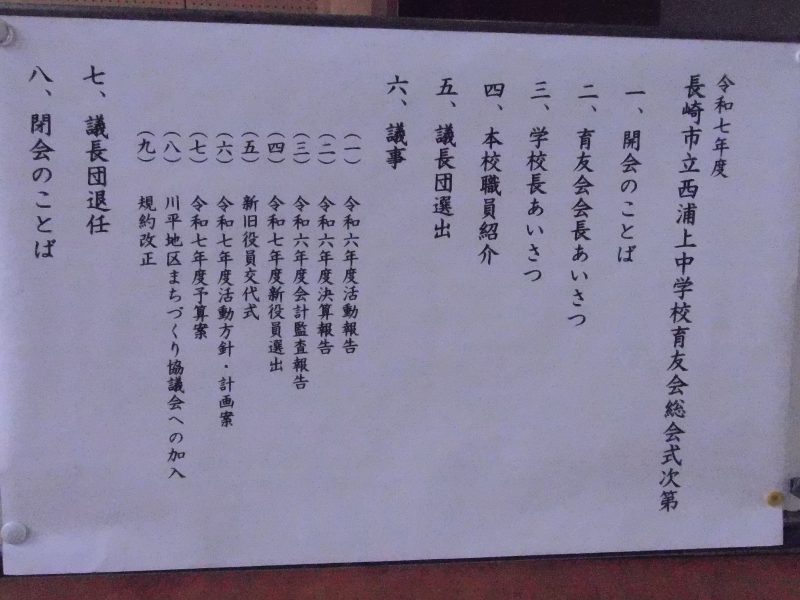 令和七年度
長崎市立西浦上中学校育友会総会式次第
一、開会のことば
二、育友会会長あいさつ
三、学校長あいさつ
四、本校職員紹介
五、議長団選出
六、議事
(一) 令和六年度活動報告
(二) 令和六年度決算報告
(三) 令和六年度会計監査報告
(四) 令和七年度新役員選出
(五) 新旧役員交代式
(六) 令和七年度活動方針・計画案
(七) 令和七年度予算案
(八) 川平地区まちづくり協議会への加入
(九) 規約改正
七、議長団退任
八、閉会のことば